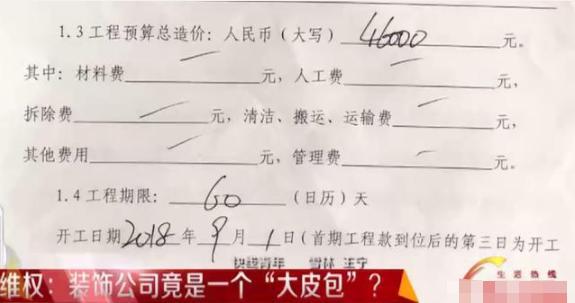 1.3工程预算总造价：人民币（大写）46000元。
其中：材料费元，人工费元，
拆除费元，清洁、搬运、运输费元，
其他费用元，管理费元。
1.4工程期限：60（日历）天
开工日期2018年9月1日（首期工程款到位后的第三日为开工
维权：装饰公司竟是一个“大皮包”？
生活热线